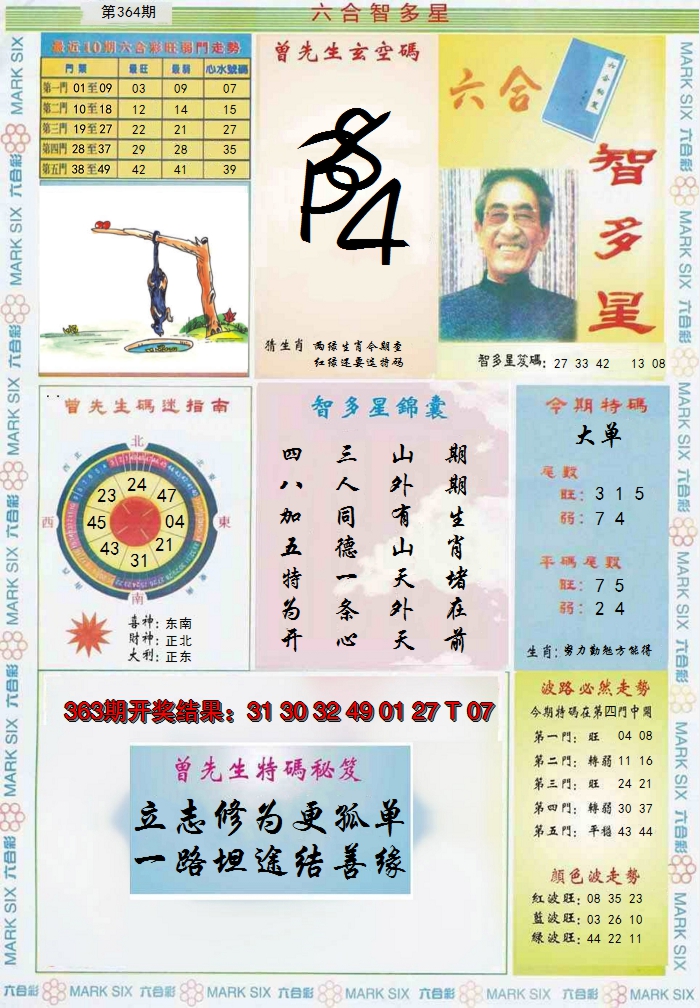 第364期
六合智多星
最近10期六合彩旺弱門走勢
門類 最旺 最弱 心水號碼
第一門 01至09 03 09 07
第二門 10至18 12 14 15
第三門 19至27 22 21 27
第四門 28至37 29 28 35
第五門 38至49 42 41 39
曾先生玄空碼
猜生肖 两绿生肖今期查
红绿还要送特码
六合
智多星
智多星笈碼: 27 33 42 13 08
曾先生碼迷指南
北
東
南
西
24
47
04
21
31
43
45
23
喜神: 东南
財神: 正北
大利: 正东
智多星錦囊
期期生肖堵在前
山外有山天外天
三人同德一条心
四八加五特为开
今期特碼
大单
尾數
旺: 3 1 5
弱: 7 4
平碼尾數
旺: 7 5
弱: 2 4
生肖: 努力勤勉方能得
363期开奖结果: 31 30 32 49 01 27 T 07
曾先生特碼秘笈
立志修为更孤单
一路坦途结善缘
波路必然走勢
今期特碼在第四門中開
第一門: 旺 04 08
第二門: 轉弱 11 16
第三門: 旺 24 21
第四門: 轉弱 30 37
第五門: 平穩 43 44
顏色波走勢
紅波旺: 08 35 23
藍波旺: 03 26 10
綠波旺: 44 22 11
MARK SIX 六合彩